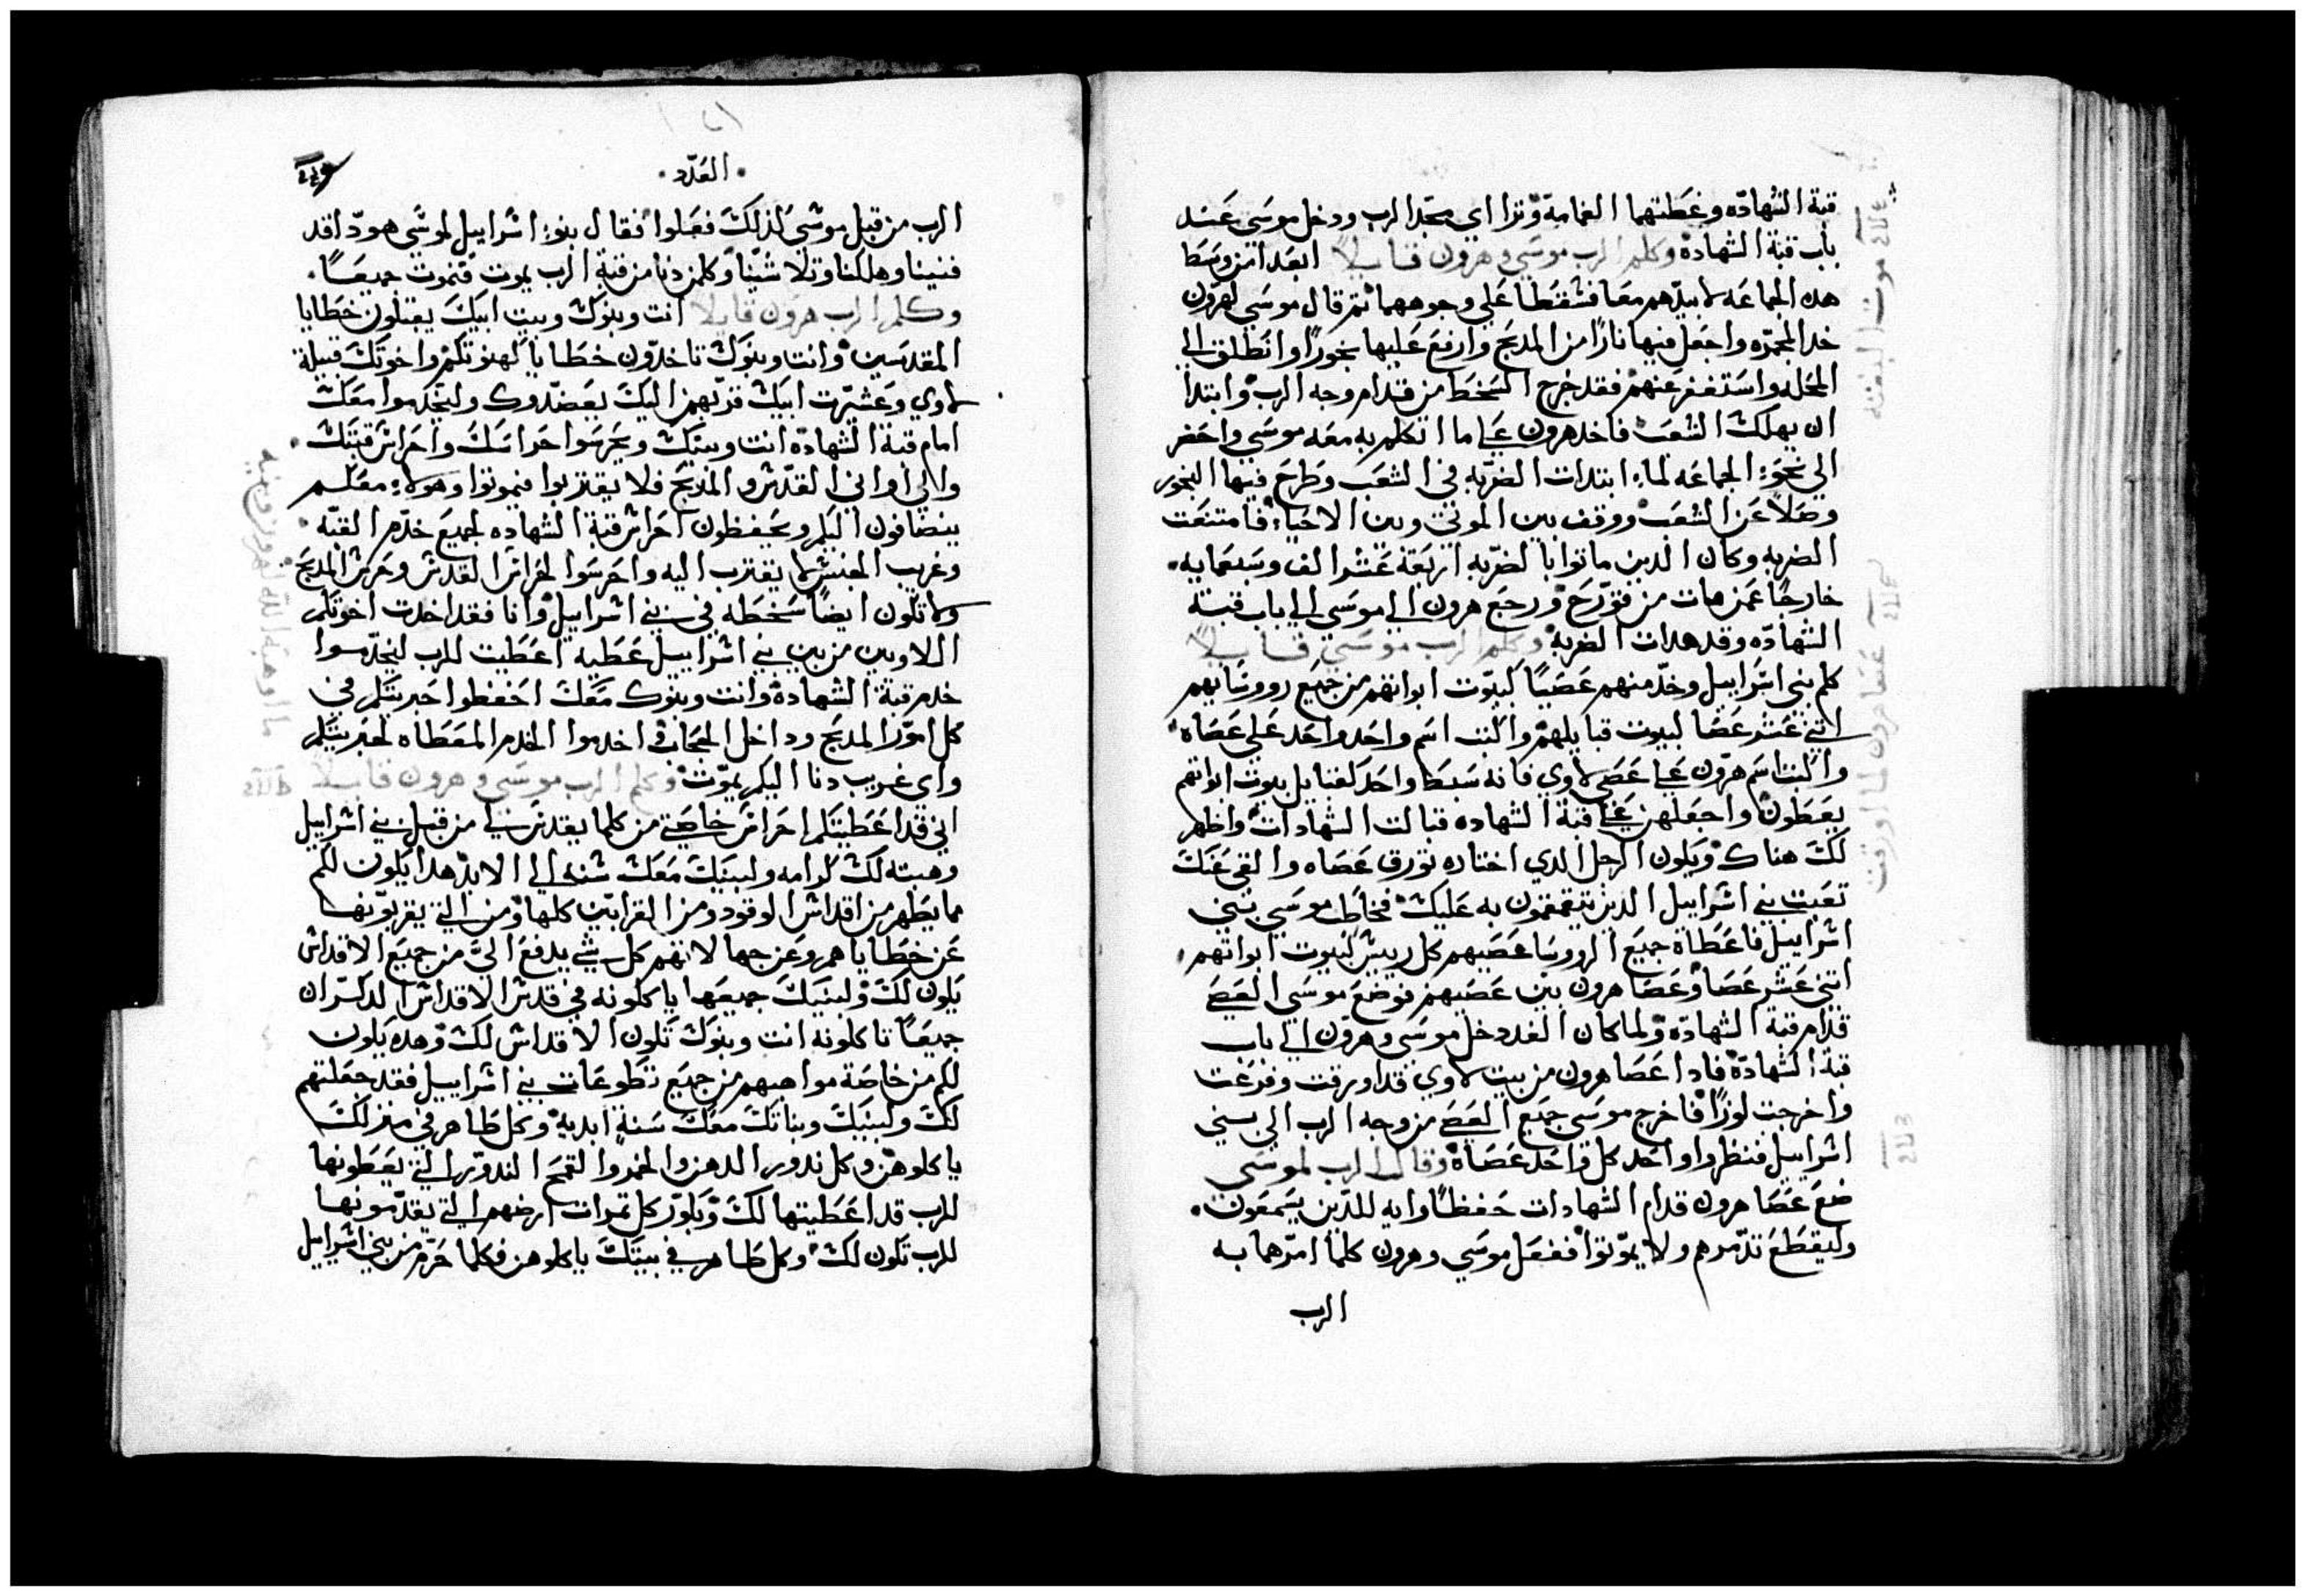 قبة الشهاده وغطتهما الغمامة وترااي مجد الرب ودخل موسى عند
باب قبة الشهادة وكلم الرب موسي وهرون قايلاً ابعدا من وسط
هده الجماعه لابيدهم معا فسقطا علي وجوههما ثم قال موسي لهرون
خد المجمره واجعل فيها نارًا من المدبح وارفع عليها بخورًا وانطلق الي
المحله واستغفر عنهم فقد خرج السخط من قدام وجه الرب وابتدا
ان يهلك الشعب فاخد هرون علي ما اتكلم به معه موسي واحضر
الي نحو الجماعه لما ابتدات الضربه في الشعب وطرح فيها البخور
وصلا عن الشعب ووقف بين الموتي وبين الاحياء فامتنعت
الضربه وكان الدين ماتوا بالضربه اربعة عشر الف وسبعمايه
خارجًا عمن مات من قورح ورجع هرون الي موسي الي باب قبة
الشهاده وقد هدات الضربه وكلم الرب موسي قايلاً
كلم بني اسراييل وخد منهم عصيًا لبيوت ابواتهم من جميع رووسايهم
اتني عشر عصا لبيوت قبايلهم واكتب اسم واحد واحد علي عصاه
واكتب اسم هرون علي عصي لاوي فانه سبط واحد لقبايل بيوت ابواتهم
يعطون واجعلهن في قبة الشهاده قبالت الشهادات واظهر
لك هناك ويكون الرجل الدي اختاره تورق عصاه والقي عنك
تعبت بني اسراييل الدين يتقمقمون به عليك فخاطب موسي بني
اسراييل فاعطاه جميع الرووسا عصيهم كل رييس لبيوت ابواتهم
اتني عشر عصا وعصا هرون بين عصيهم فوضع موسي العصي
قدام قبة الشهاده ولما كان الغد دخل موسي وهرون الي باب
قبة الشهادة فادا عصا هرون من بيت لاوي قد اورقت وفرعت
واخرجت لوزًا فاخرج موسي جميع العصي من وجه الرب الي بني
اسراييل فنظروا واخد كل واحد عصاه وقال الرب لموسي
ضع عصا هرون قدام الشهادات حفظًا وايه للدين يسمعون
وليقطع تدمرهم ولا يموتوا ففعل موسي وهرون كلما امرهما به
الرب
العدد
الرب من قبل موسي كدلك فعلوا فقال بنو اسراييل لموسي هودا قد
فنينا وهلكنا وتلاشينا وكلمن دنا من قبة الرب يموت فنموت جميعًا
وكلم الرب هرون قايلا انت وبنوك وبيت ابيك يقبلون خطايا
المقدسين وانت وبنوك تاخدون خطايا كهنوتكم واخوتك قبيلة
لاوي وعشيرت ابيك قربهم اليك يعضدوك وليخدموا معك
امام قبة الشهاده انت وبنيك ويحرسوا حراستك واحراس قبتك
والي اواني القدس والمدبح فلا يقتربوا فيموتوا وهولاء معكم
ينضافون اليكم ويحفظون احراس قبة الشهاده لجميع خدم القبه
وغريب الجنس لا يقترب اليه واحرسوا احراس القدس وحرس المدبح
ولا تكون ايضًا سخطه في بني اسراييل وانا فقد اخدت اخوتكم
اللاويين من بين بني اسراييل عطيه اعطيت للرب ليخدموا
خدم قبة الشهادة وانت وبنوك معك احفظوا حبريتكم في
كل امور المدبح وداخل الحجاب اخدموا الخدم المعطاه لحبريتكم
واي غريب دنا اليكم يموت وكلم الرب موسي وهرون قايلاً
اني قد اعطيتكم احراس خاصتي من كلما يقدس لي من قبل بني اسراييل
وهبته لك كرامه ولبنيك معك سنه الي الابد هدا يكون لكم
مما يطهر من اقداس الوقود ومن القرابين كلها ومن التي يقربونها
عن خطاياهم وعن جهالاتهم كل شي يدفع الي من جميع الاقداس
يكون لك ولبنيك جميعها ياكلونه في قدس الاقداس الدكران
جميعًا تاكلونه انت وبنوك تكون الاقداس لك وهده يكون
لكم من خاصة مواهبهم من جميع تطوعات بني اسراييل فقد جعلتهم
لك ولبنيك وبناتك معك سنة ابدية وكل طاهر في منزلك
ياكلوهن وكل ندور الدهن والخمر والقمح الندور التي يعطونها
للرب قد اعطيتها لك وبكور كل تمرات ارضهم التي يقدمونها
للرب تكون لك وكل طاهر في بيتك ياكلوهن فكلما حرم من بني اسراييل